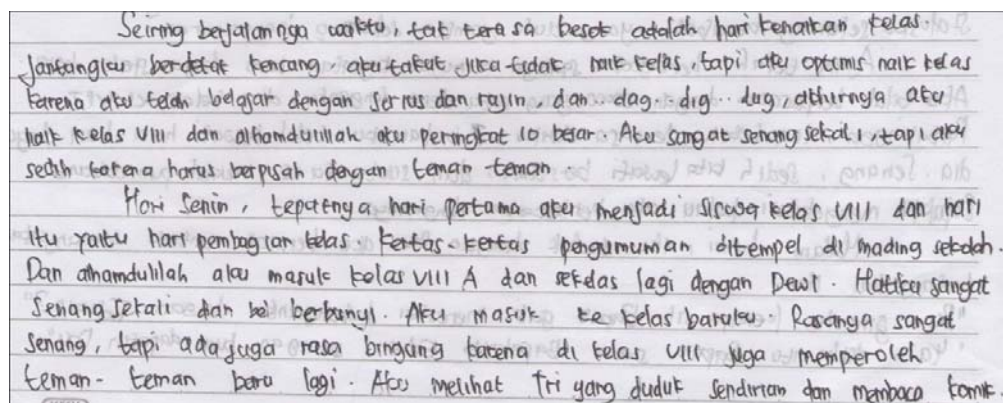 Seiring berjalannya waktu, tak tera sa besok adalah hari kenaikan kelas.
Jantungku berdetak kencang. aku takut jika tidak naik kelas, tapi aku optimis naik kelas
karena aku telah belajar dengan serius dan rajin. dan dag..dig.. dug, akhirnya aku
naik kelas VIII dan alhamdulillah aku peringkat 10 besar. Aku sangat senang sekali, tapi aku
sedih karena harus berpisah dengan teman teman.
Hari Senin, tepatnya hari pertama aku menjadi siswa kelas VIII dan hari
itu yaitu hari pembagian kelas. Kertas-kertas pengumuman ditempel di mading sekolah.
Dan alhamdulilah aku masuk kelas VIII A dan sekelas lagi dengan Dewi. Hatiku sangat
senang sekali dan bel berbunyi. Aku masuk ke kelas baruku. Rasanya sangat
senang, tapi ada juga rasa bingung karena di kelas VIII juga memperoleh
teman-teman baru lagi. Aku melihat Tri yang duduk sendirian dan membaca komik.